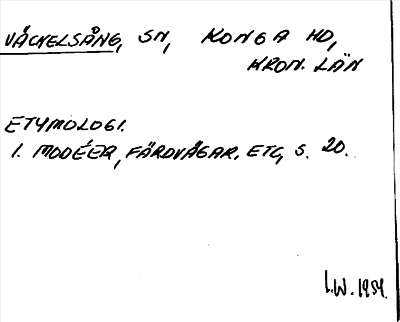 VÄCKELSÅNG, SN, KONGA HD,
KRON. LÄN
ETYMOLOGI.
1. MODÉER, FÄRDVÄGAR, ETC, S. 20.
I.W. 1959.